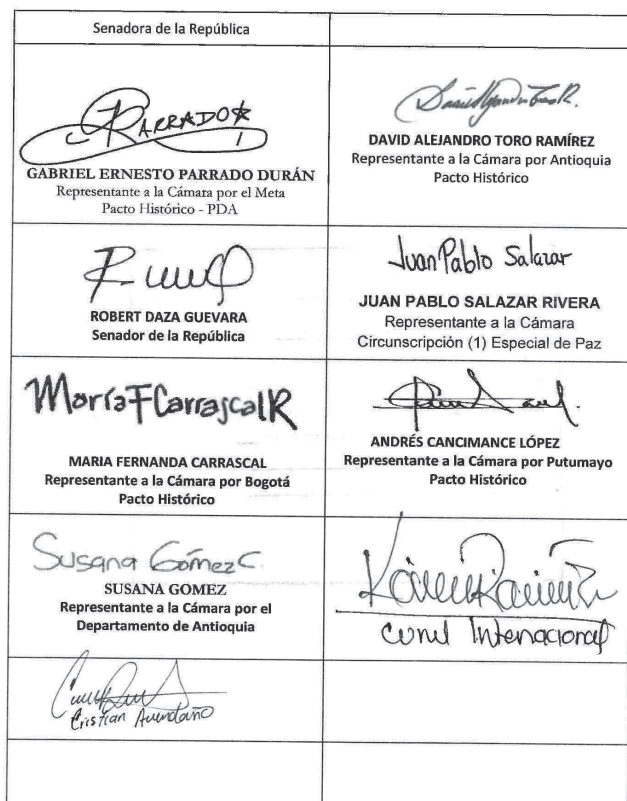 Senadora de la República
PARRADO
GABRIEL ERNESTO PARRADO DURÁN
Representante a la Cámara por el Meta
Pacto Histórico - PDA
DAVID ALEJANDRO TORO RAMÍREZ
Representante a la Cámara por Antioquia
Pacto Histórico
ROBERT DAZA GUEVARA
Senador de la República
Juan Pablo Salazar
JUAN PABLO SALAZAR RIVERA
Representante a la Cámara
Circunscripción (1) Especial de Paz
María F Carrascal R
MARIA FERNANDA CARRASCAL
Representante a la Cámara por Bogotá
Pacto Histórico
ANDRÉS CANCIMANCE LÓPEZ
Representante a la Cámara por Putumayo
Pacto Histórico
Susana Gómez C
SUSANA GOMEZ
Representante a la Cámara por el
Departamento de Antioquia
Internacional
Cristian Avendaño